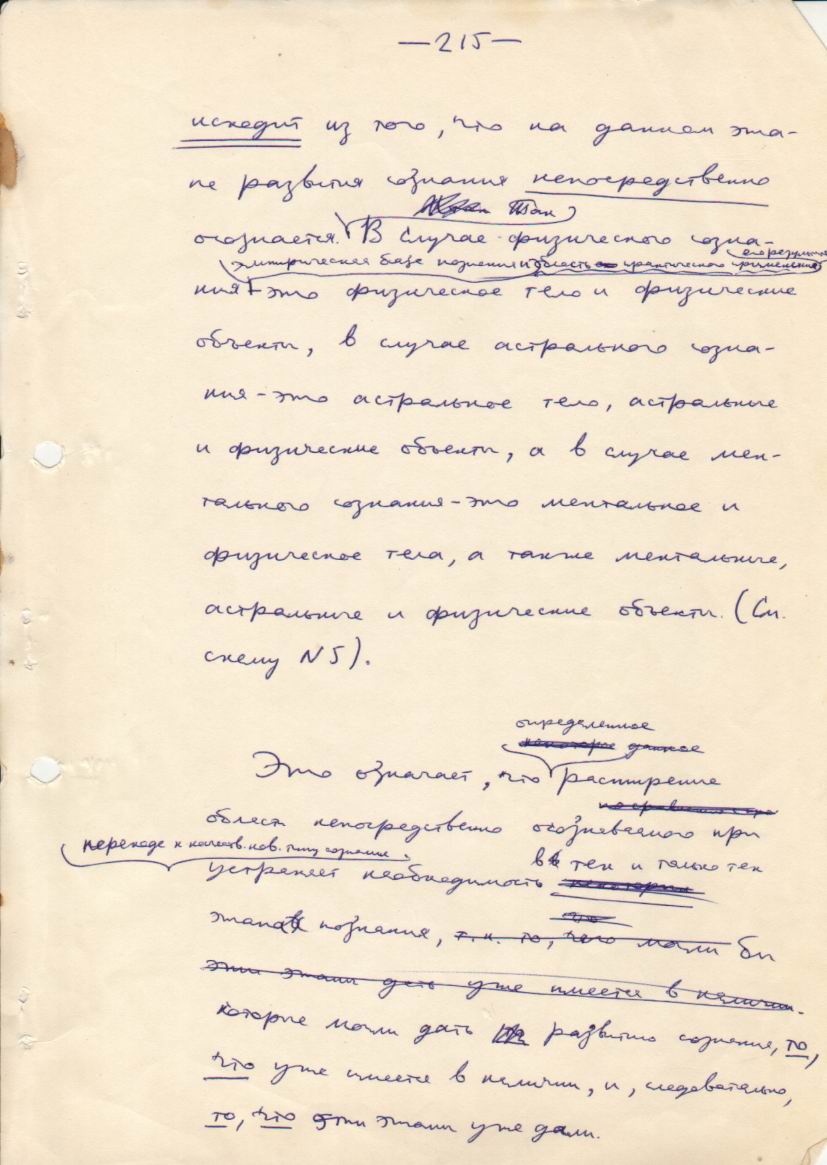 —215—
исходит из того, что на данном эта-
пе развития сознания непосредственно
План
осознается. В случае физического созна-
его результатов
эмпирическая база познания и область практического применения
ния – это физическое тело и физические
объекты, в случае астрального созна-
ния – это астральное тело, астральные
и физические объекты, а в случае мен-
тального сознания – это ментальное и
физическое тела, а также ментальные,
астральные и физические объекты. (См.
схему N5).
определенное
некоторое данное
Это означает, что расширение
по сравнению
области непосредственно осознаваемого при
переходе к качеств. нов. типу сознания
устраняет необходимость в тех и только тех
некоторых
этапах познания, т.к. то, чего могли бы
что
эти этапы дать уже имеется в наличии.
которые могли дать развитию сознания, то,
что уже имеется в наличии, и, следовательно,
то, что эти этапы уже дали.